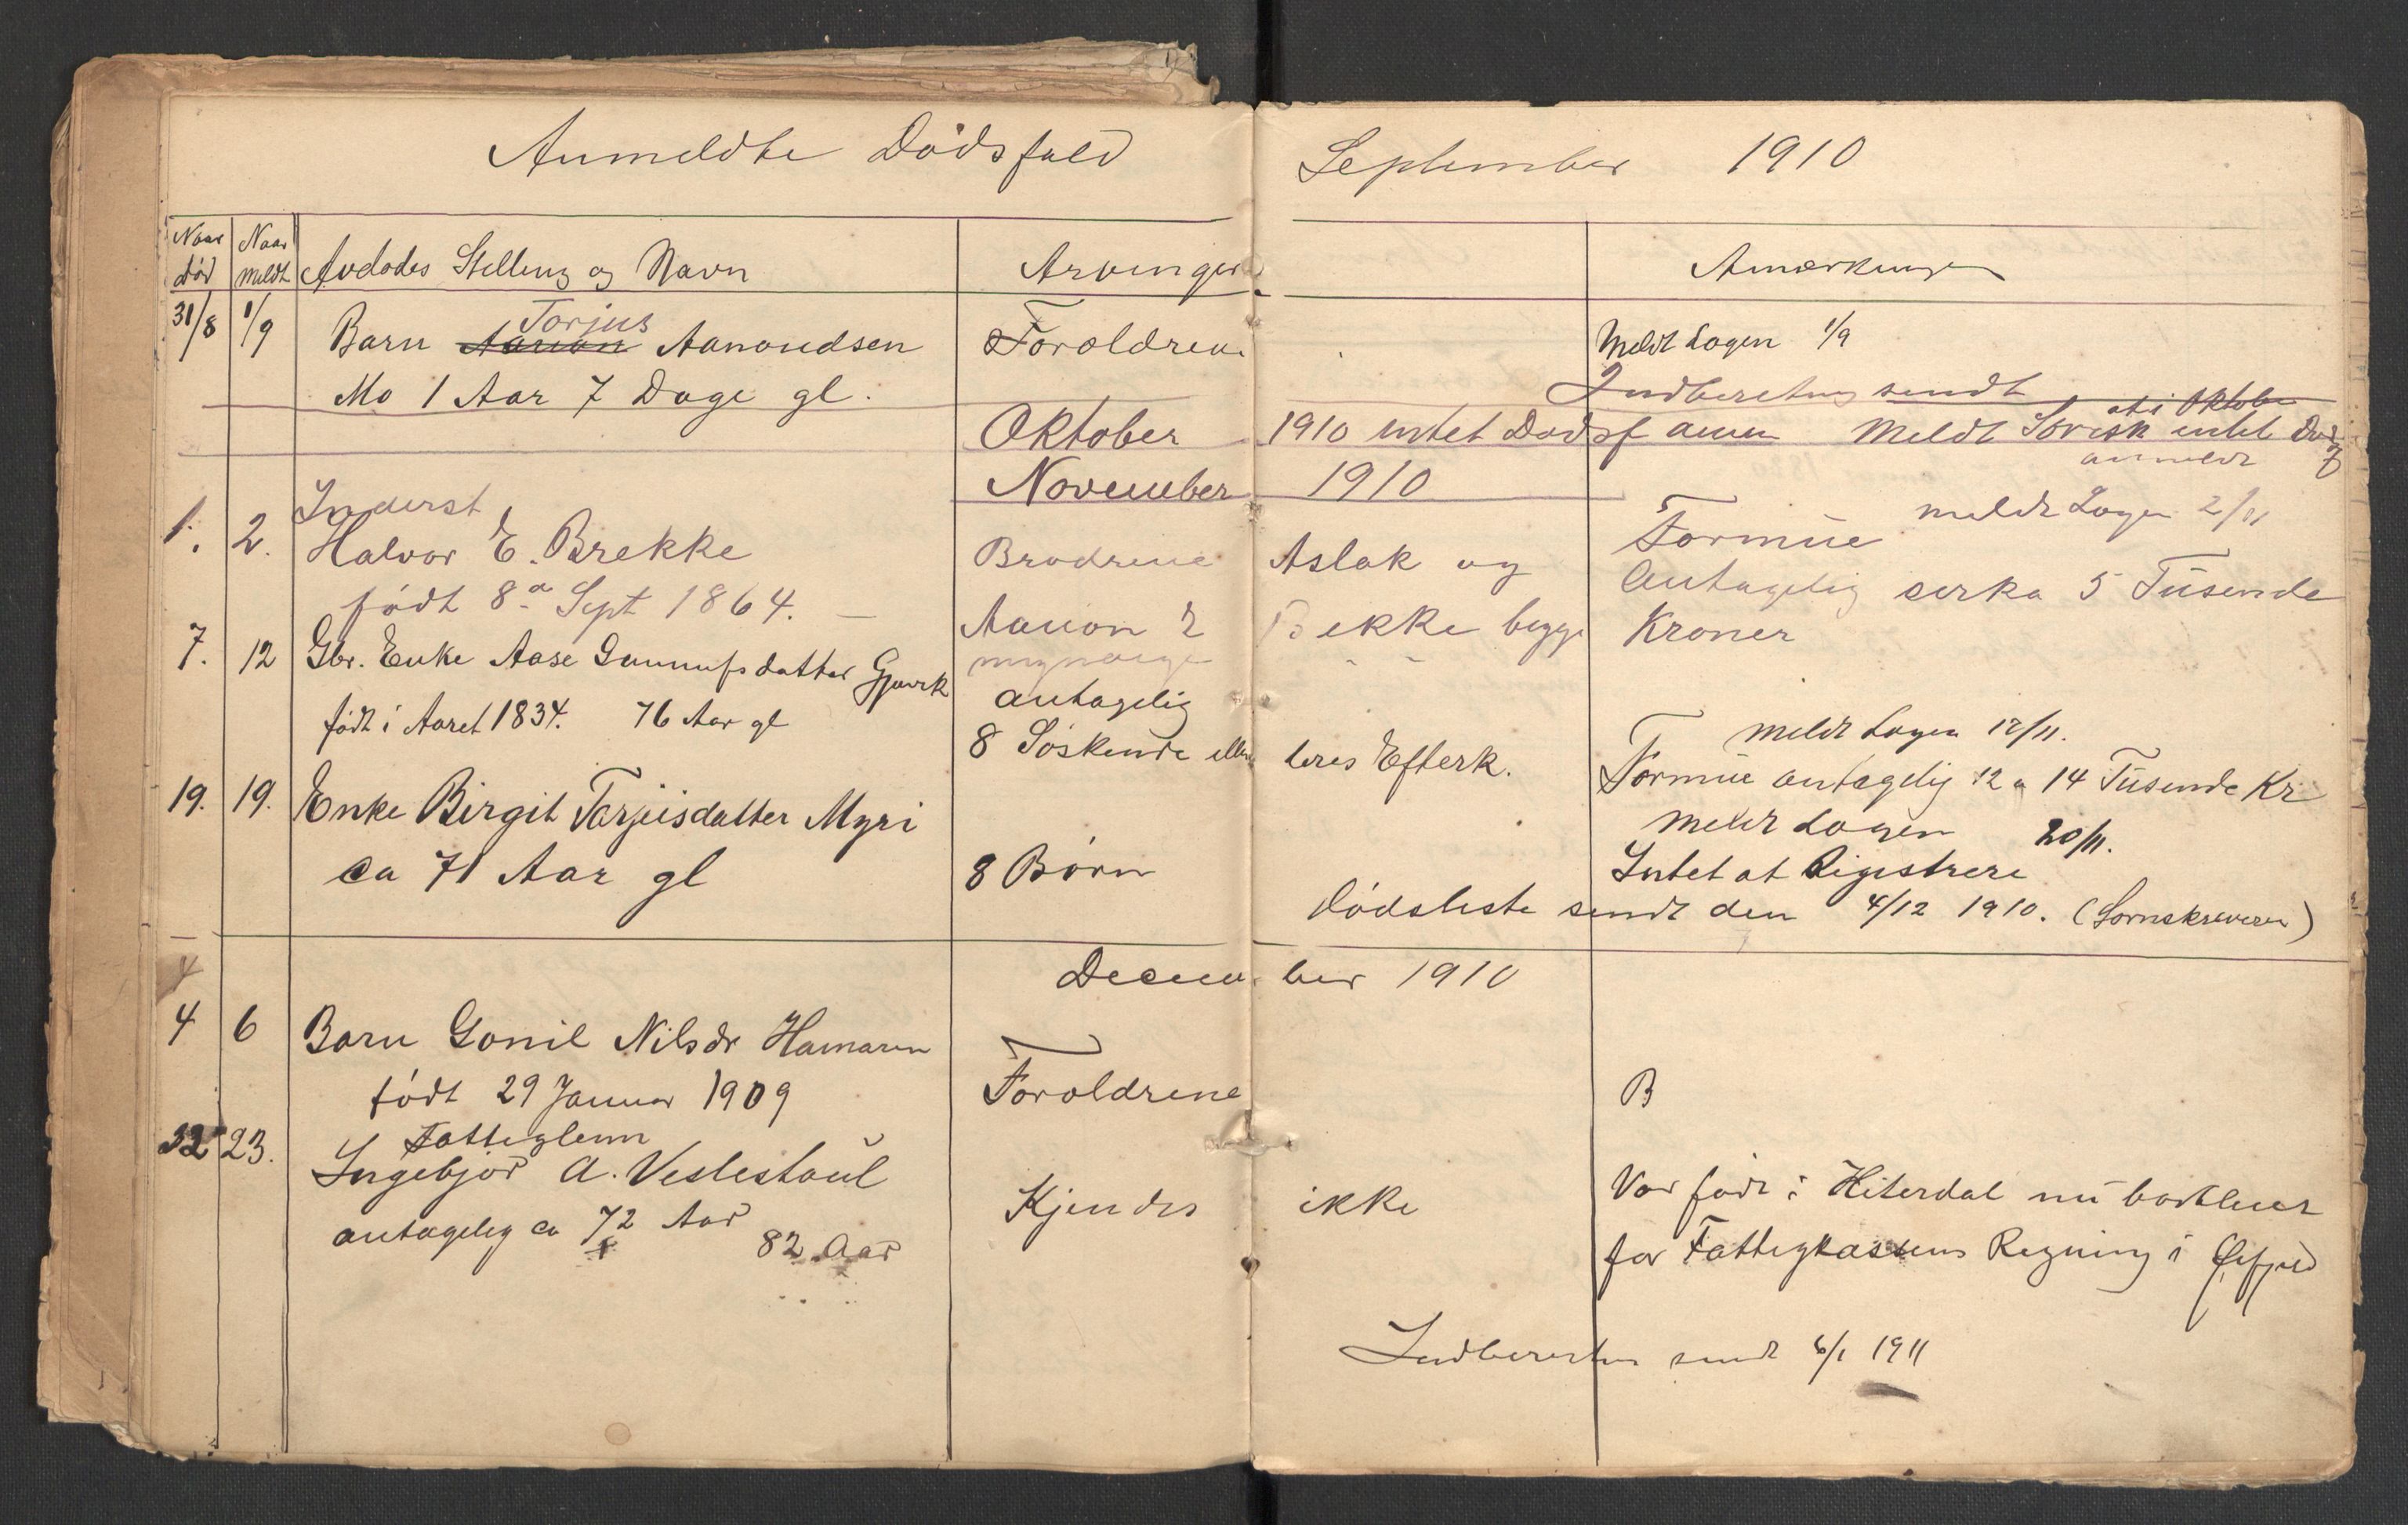 Anmeldte Dödsfald September 1910
Naar död Naar meldt Avdödes Stelling og Navn Arvinger Anmærkninger
31/8 1/9 Barn Torjus Aanondsen Foroldrene Meldt Lagen 1/9
Mo 1 Aar 7 Dage gl.
Indberetning sendt
Oktober 1910 intet Dødsf anm Meldt Sorensk at i Oktober intet Dødsf
anmeldt
November 1910
1. 2. Inderst
Halvor E. Brekke Brødrene Aslak og Formue meldt Lagen 2/11
født 8de Sept 1864. Aanon E Brekke begge Antagelig serka 5 Tusende
myndige Kroner
7. 12 Gbr. Enke Aase Gunnufsdatter Gjuvik antagelig
født i Aaret 1834. 76 Aar gl 8 Søskende eller deres Efterk. meldt Lagen 12/11.
Formue antagelig 12 a 14 Tusende Kr
19. 19. Enke Birgit Tarjeisdatter Myri meldt Lagen 20/11.
ca 71 Aar gl 8 Børn Intet at Rigistrere
Dødsliste sendt den 4/12 1910. (Sornskriveren)
December 1910
4
4 6 Barn Gonil Nilsdr Hamaren
født 29 Januar 1909 Foroldrene B
22 23. Fattiglem
Ingebjør A. Veslestaul Kjendes ikke Var født i Hiterdal nu bortleiet
antagelig ca 72 Aar 82 Aar for Fattigkassens Regning i
Indberetn sendt 6/1 1911